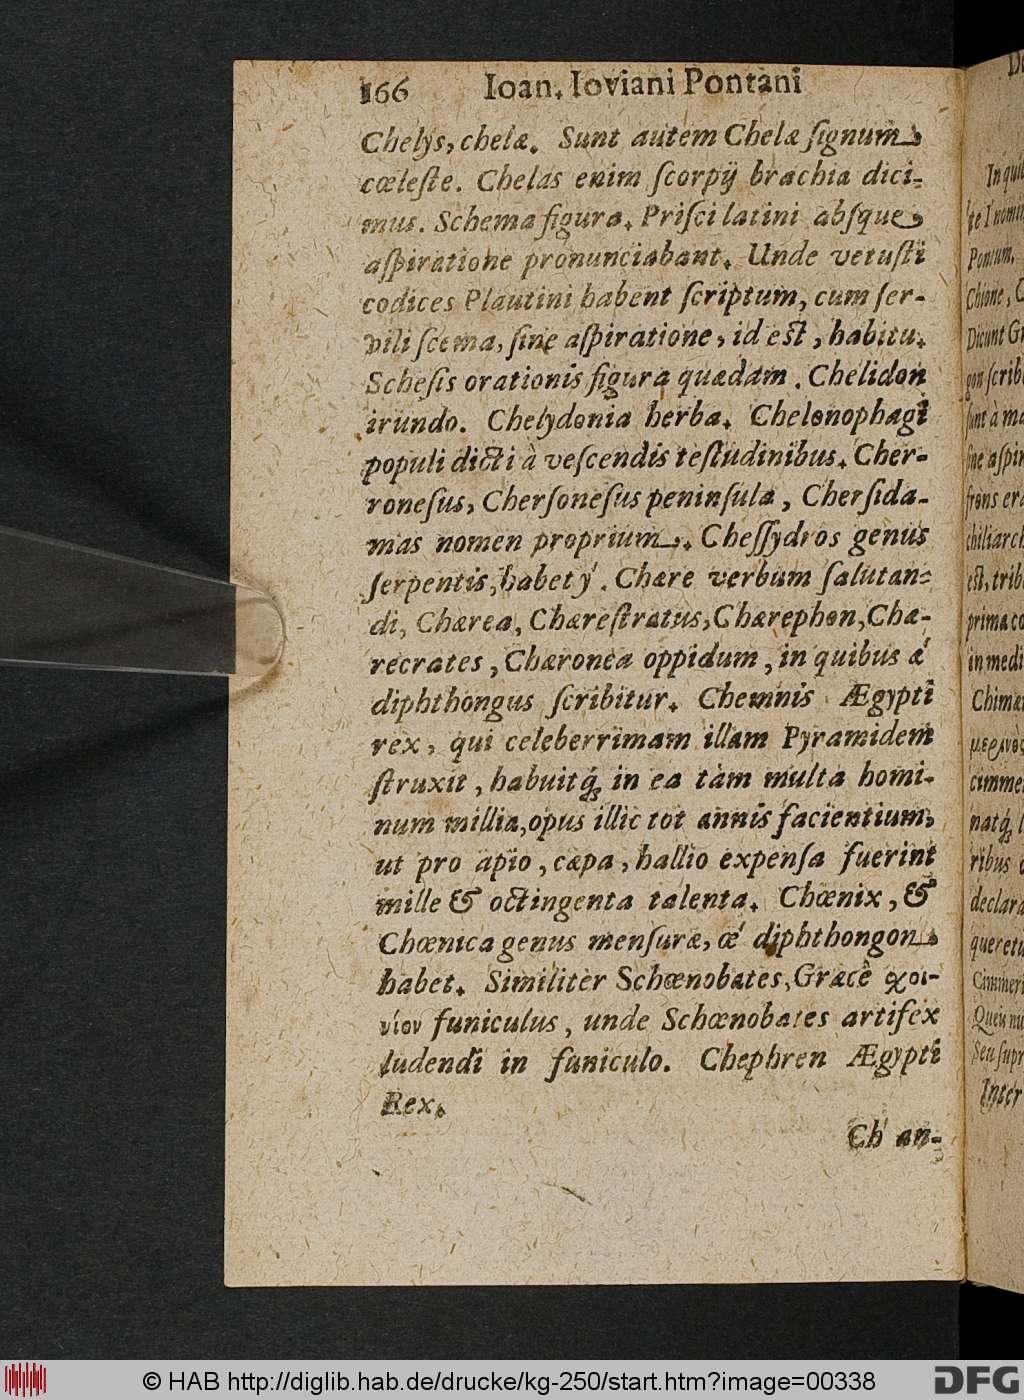 166 Ioan. Ioviani Pontani
Chelys, chelæ. Sunt autem Chelæ ſignum
cœleſte. Chelas enim ſcorpij brachia dici-
mus. Schema figura. Priſci latini abſque
aſpiratione pronunciabant. Unde vetuſti
codices Plautini habent ſcriptum, cum ſer-
vili ſcema, ſine aſpiratione, id eſt, habitu.
Scheſis orationis figura quædam. Chelidon
irundo. Chelydonia herba. Chelonophagi
populi dicti à veſcendis teſtudinibus. Cher-
roneſus, Cherſoneſus peninſula, Cherſida-
mas nomen proprium. Cheſſydros genus
ſerpentis, habet ý. Chære verbum ſalutan-
di, Chærea, Chæreſtratus, Chærephon, Chæ-
recrates, Chæronea oppidum, in quibus ǽ
diphthongus ſcribitur. Chemnis Ægypti
rex, qui celeberrimam illam Pyramidem
ſtruxit, habuitq́; in ea tàm multa homi-
num millia, opus illic tot annis facientium,
ut pro apio, cæpa, hallio expenſa fuerint
mille & octingenta talenta. Chœnix, &
Chœnica genus menſuræ, œ́ diphthongon
habet. Similiter Schœnobates, Græcè χοι-
νίον funiculus, unde Schœnobates artifex
ludendi in funiculo. Chephren Ægypti
Rex.
Ch an-
In
Pontum,
Chione, C
Dicunt
chiliarch
eſt, trib
prima
in medi
Chimær
μερινὸς
cimme
natq́;
ribus
declara
queretu
Cimmeri
Inter
© HAB http://diglib.hab.de/drucke/kg-250/start.htm?image=00338
DFG